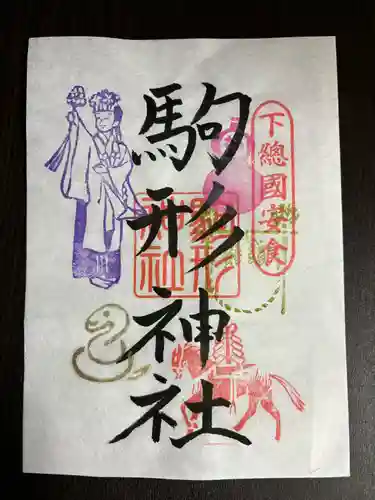 下總國安食
駒形神社
駒形
神社